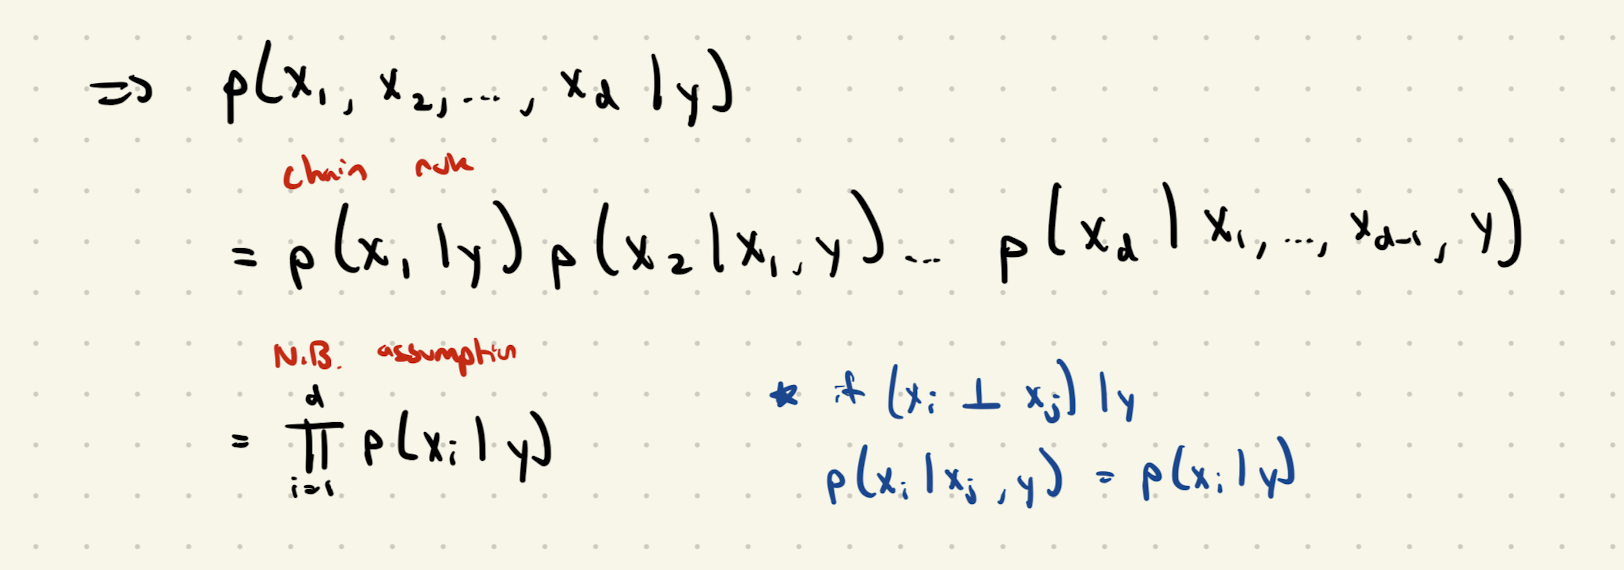 ⇒ p(x₁, x₂, ..., x_d | y)
chain rule
= p(x₁ | y) p(x₂ | x₁, y) ... p(x_d | x₁, ..., x_{d-1}, y)
N.B. assumption
= ∏_{i=1}^{d} p(x_i | y)
* if (x_i ⊥ x_j) | y
p(x_i | x_j, y) = p(x_i | y)